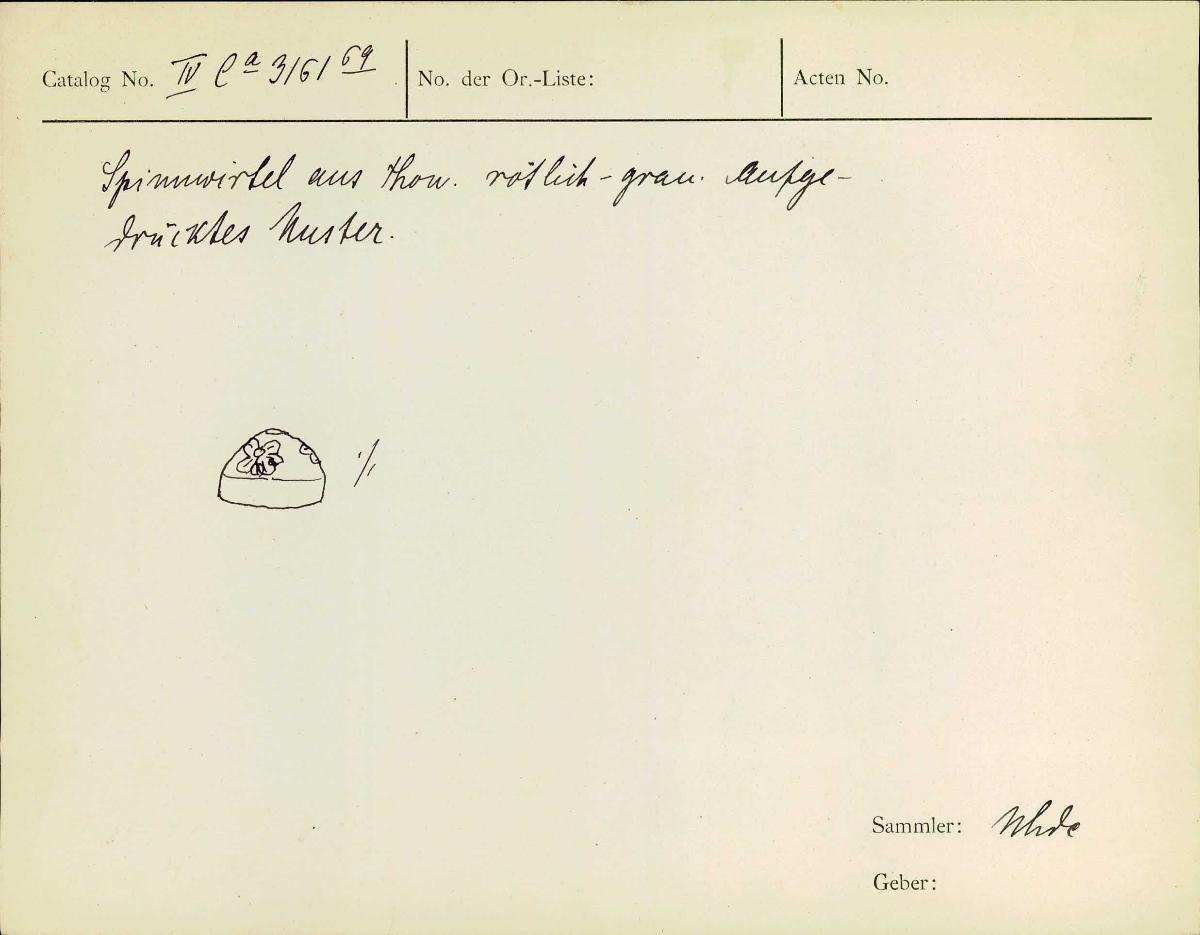 Catalog No. IV Ca 3161 69
No. der Or.-Liste:
Acten No.
Spinnwirtel aus Thon. rötlich-grau. Aufge-
drücktes Muster.
1/1
Sammler: Uhde
Geber: